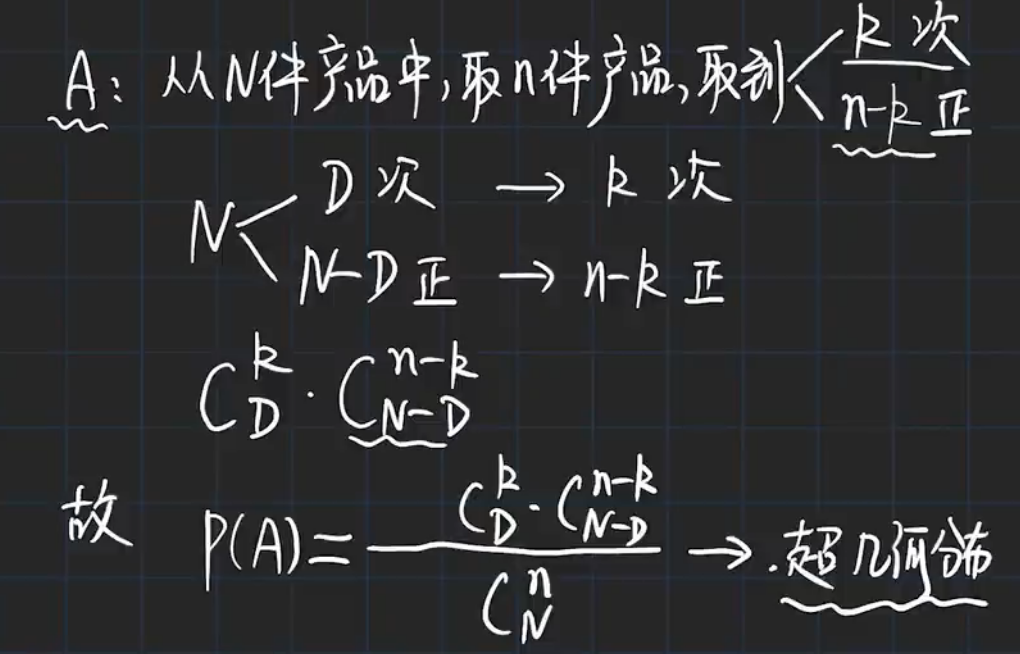 A: 从N件产品中,取n件产品,取到< k次
n-k正
N< D次 → k次
N-D正 → n-k正
C_D^k · C_{N-D}^{n-k}
故 P(A) = \frac{C_D^k · C_{N-D}^{n-k}}{C_N^n} → 超几何分布